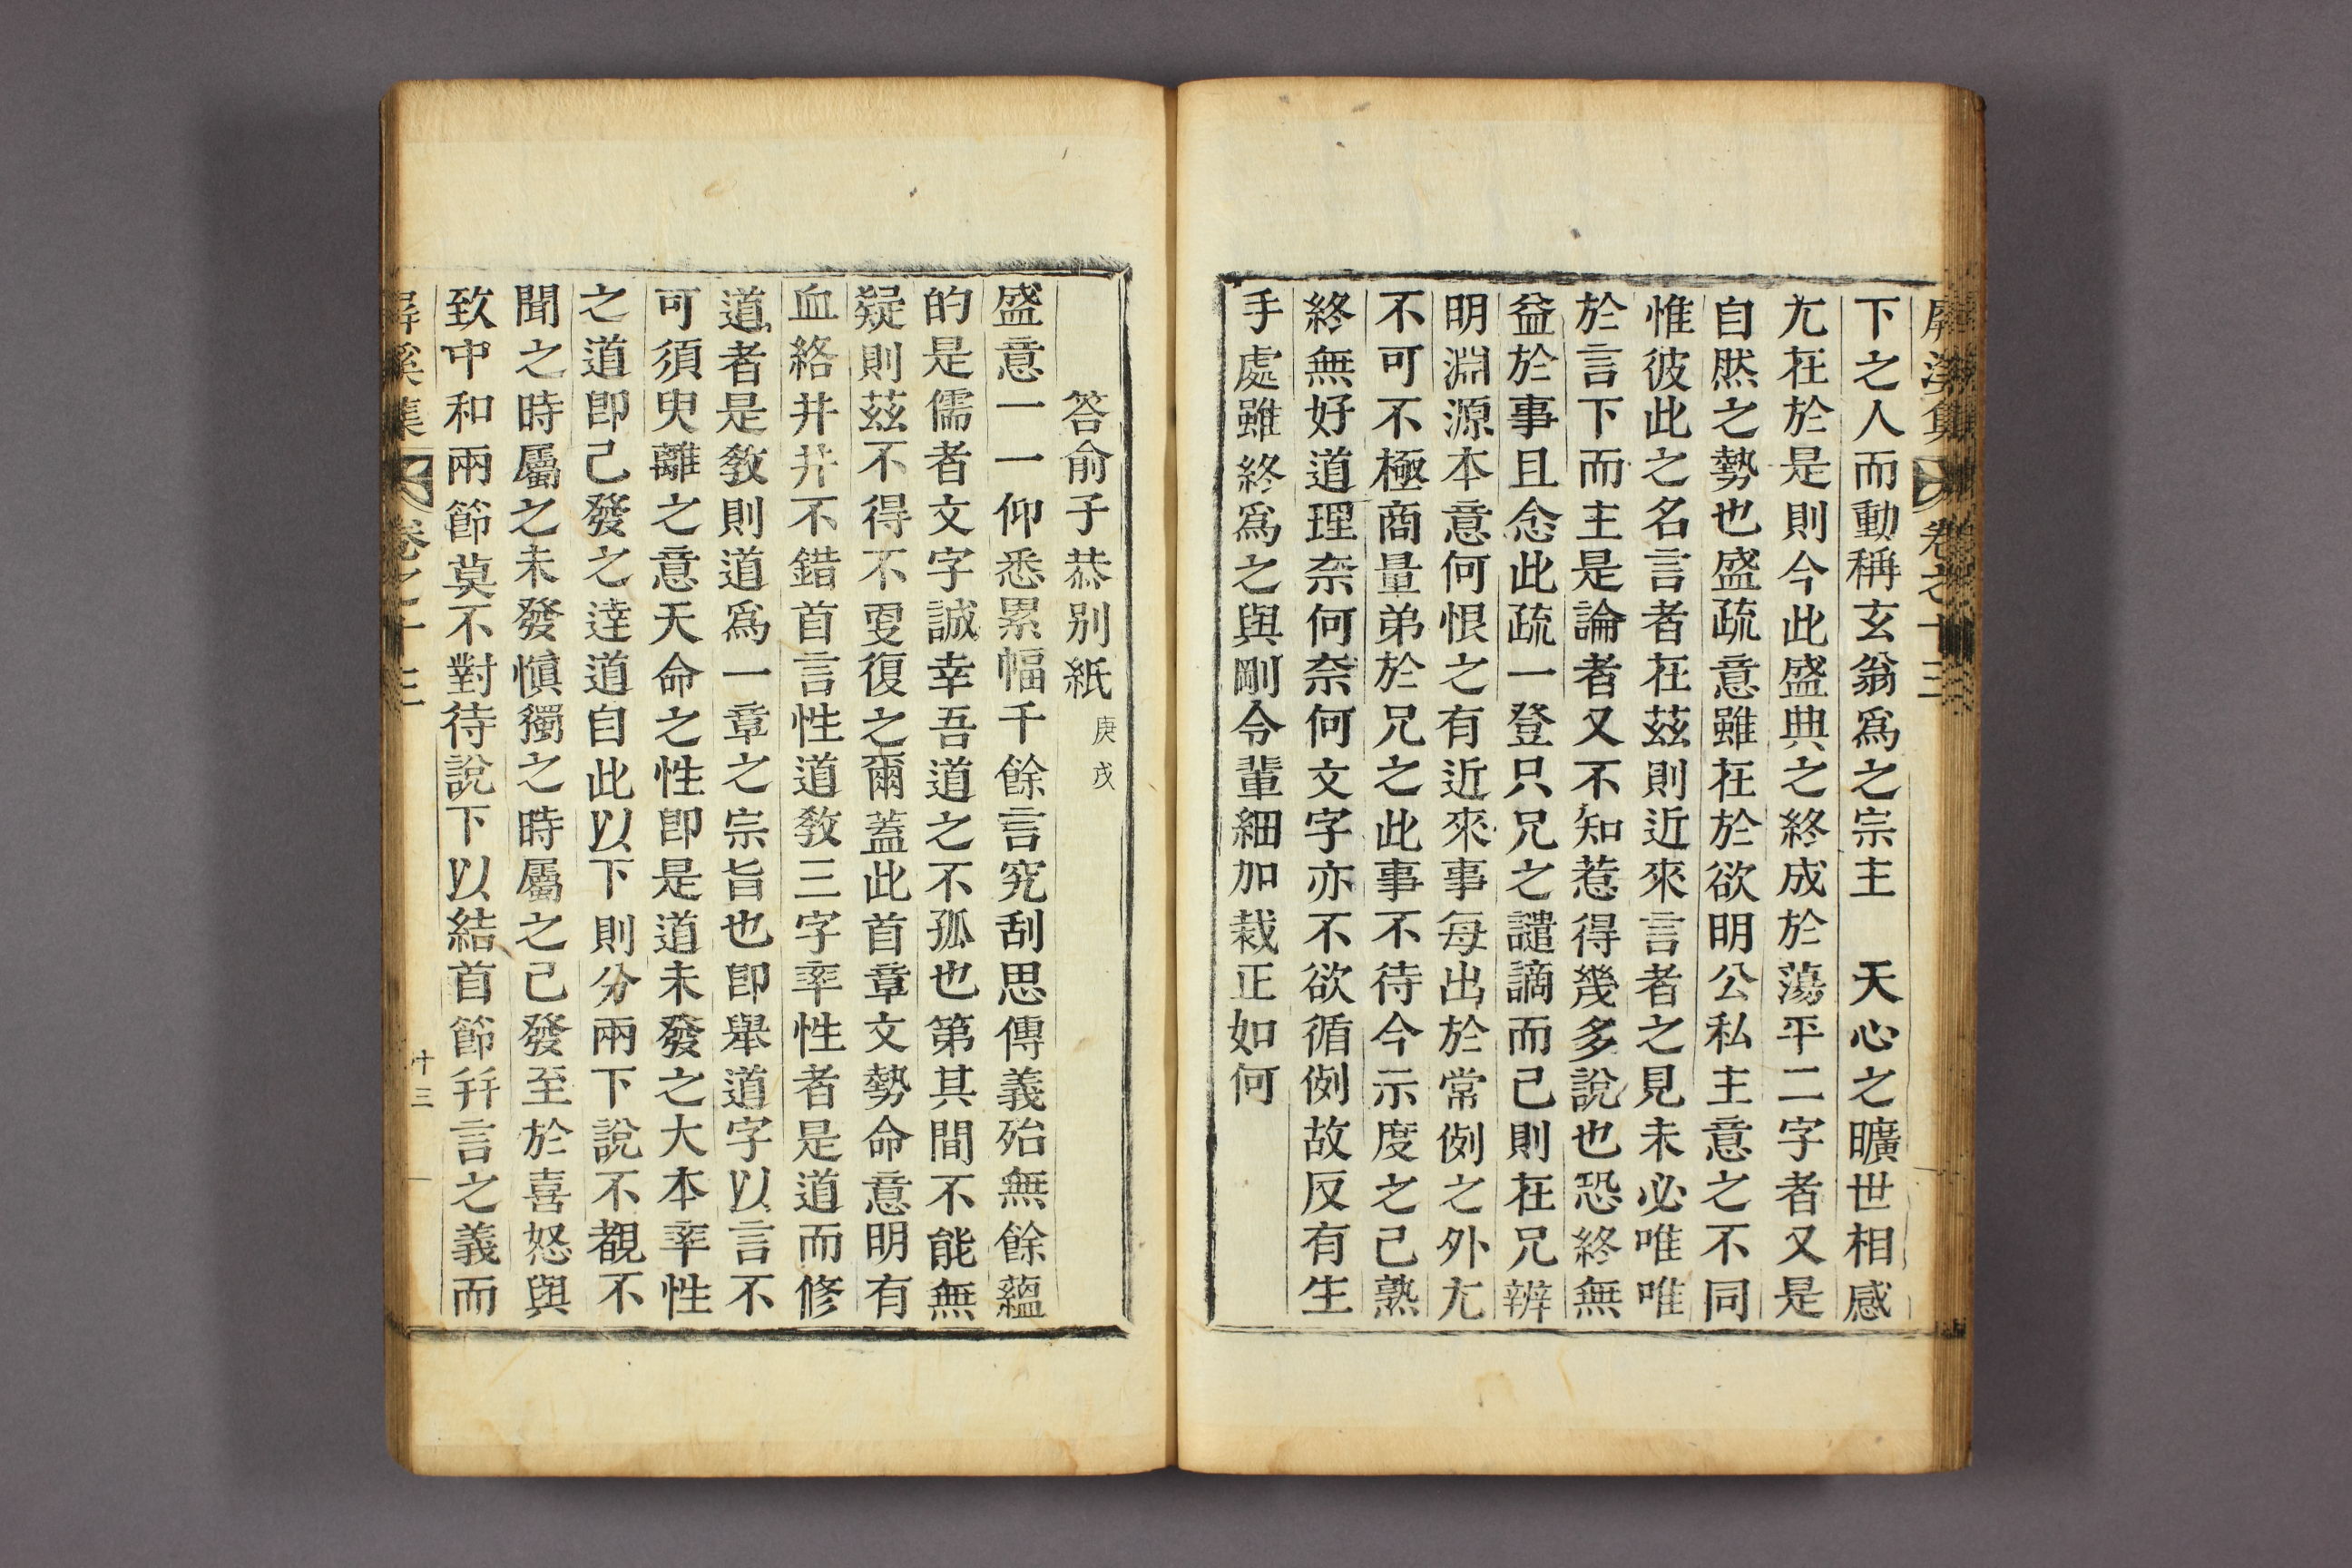 屛溪集 卷之十三
下之人而動稱玄翁爲之宗主　天心之曠世相感
尤在於是則今此盛典之終成於蕩平二字者又是
自然之勢也盛疏意雖在於欲明公私主意之不同
惟彼此之名言者在茲則近來言者之見未必唯唯
於言下而主是論者又不知惹得幾多說也恐終無
益於事且念此疏一登只兄之譴謫而已則在兄辨
明淵源本意何恨之有近來事每出於常例之外尤
不可不極商量弟於兄之此事不待今示度之已熟
終無好道理奈何奈何文字亦不欲循例故反有生
手處雖終爲之與剛令輩細加裁正如何
答俞子恭別紙 庚戌
盛意一一仰悉累幅千餘言究刮思傳義殆無餘蘊
的是儒者文字誠幸吾道之不孤也第其間不能無
疑則茲不得不更復之爾蓋此首章文勢命意明有
血絡井井不錯首言性道敎三字率性者是道而修
道者是敎則道爲一章之宗旨也卽擧道字以言不
可須臾離之意天命之性卽是道未發之大本率性
之道卽已發之達道自此以下則分兩下說不覩不
聞之時屬之未發愼獨之時屬之已發至於喜怒與
致中和兩節莫不對待說下以結首節幷言之義而
屛溪集 卷之十三 十三